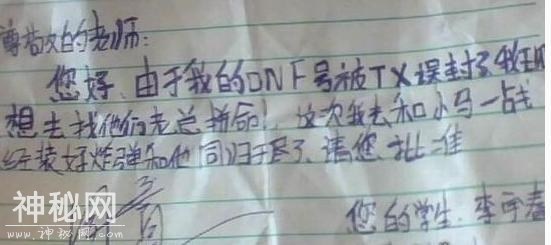 尊敬的老师:
您好,由于我的DNF号被TX误封了我现
想去找他们老总拼命!这次我去和小马一战
经装好炸弹和他同归于尽了,请您批准
您的学生.李宇春
神秘网
www.神秘网.com